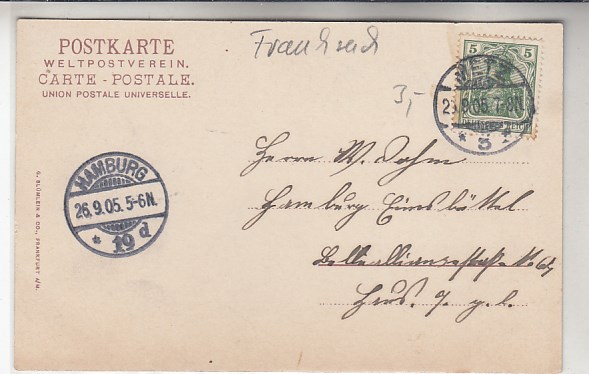 POSTKARTE
WELTPOSTVEREIN.
CARTE - POSTALE.
UNION POSTALE UNIVERSELLE.
Frankreich
3,-
5 5
DEUTSCHES REICH
METZ
25.9.05. 7-8N.
* 3 *
HAMBURG
26.9.05. 5-6N.
* 19 d
Herrn W. Dohm
Hamburg Eimsbüttel
Bellealliancestraße No
Hrs. 7. p. l.
G. BLÜMLEIN & CO., FRANKFURT A/M.